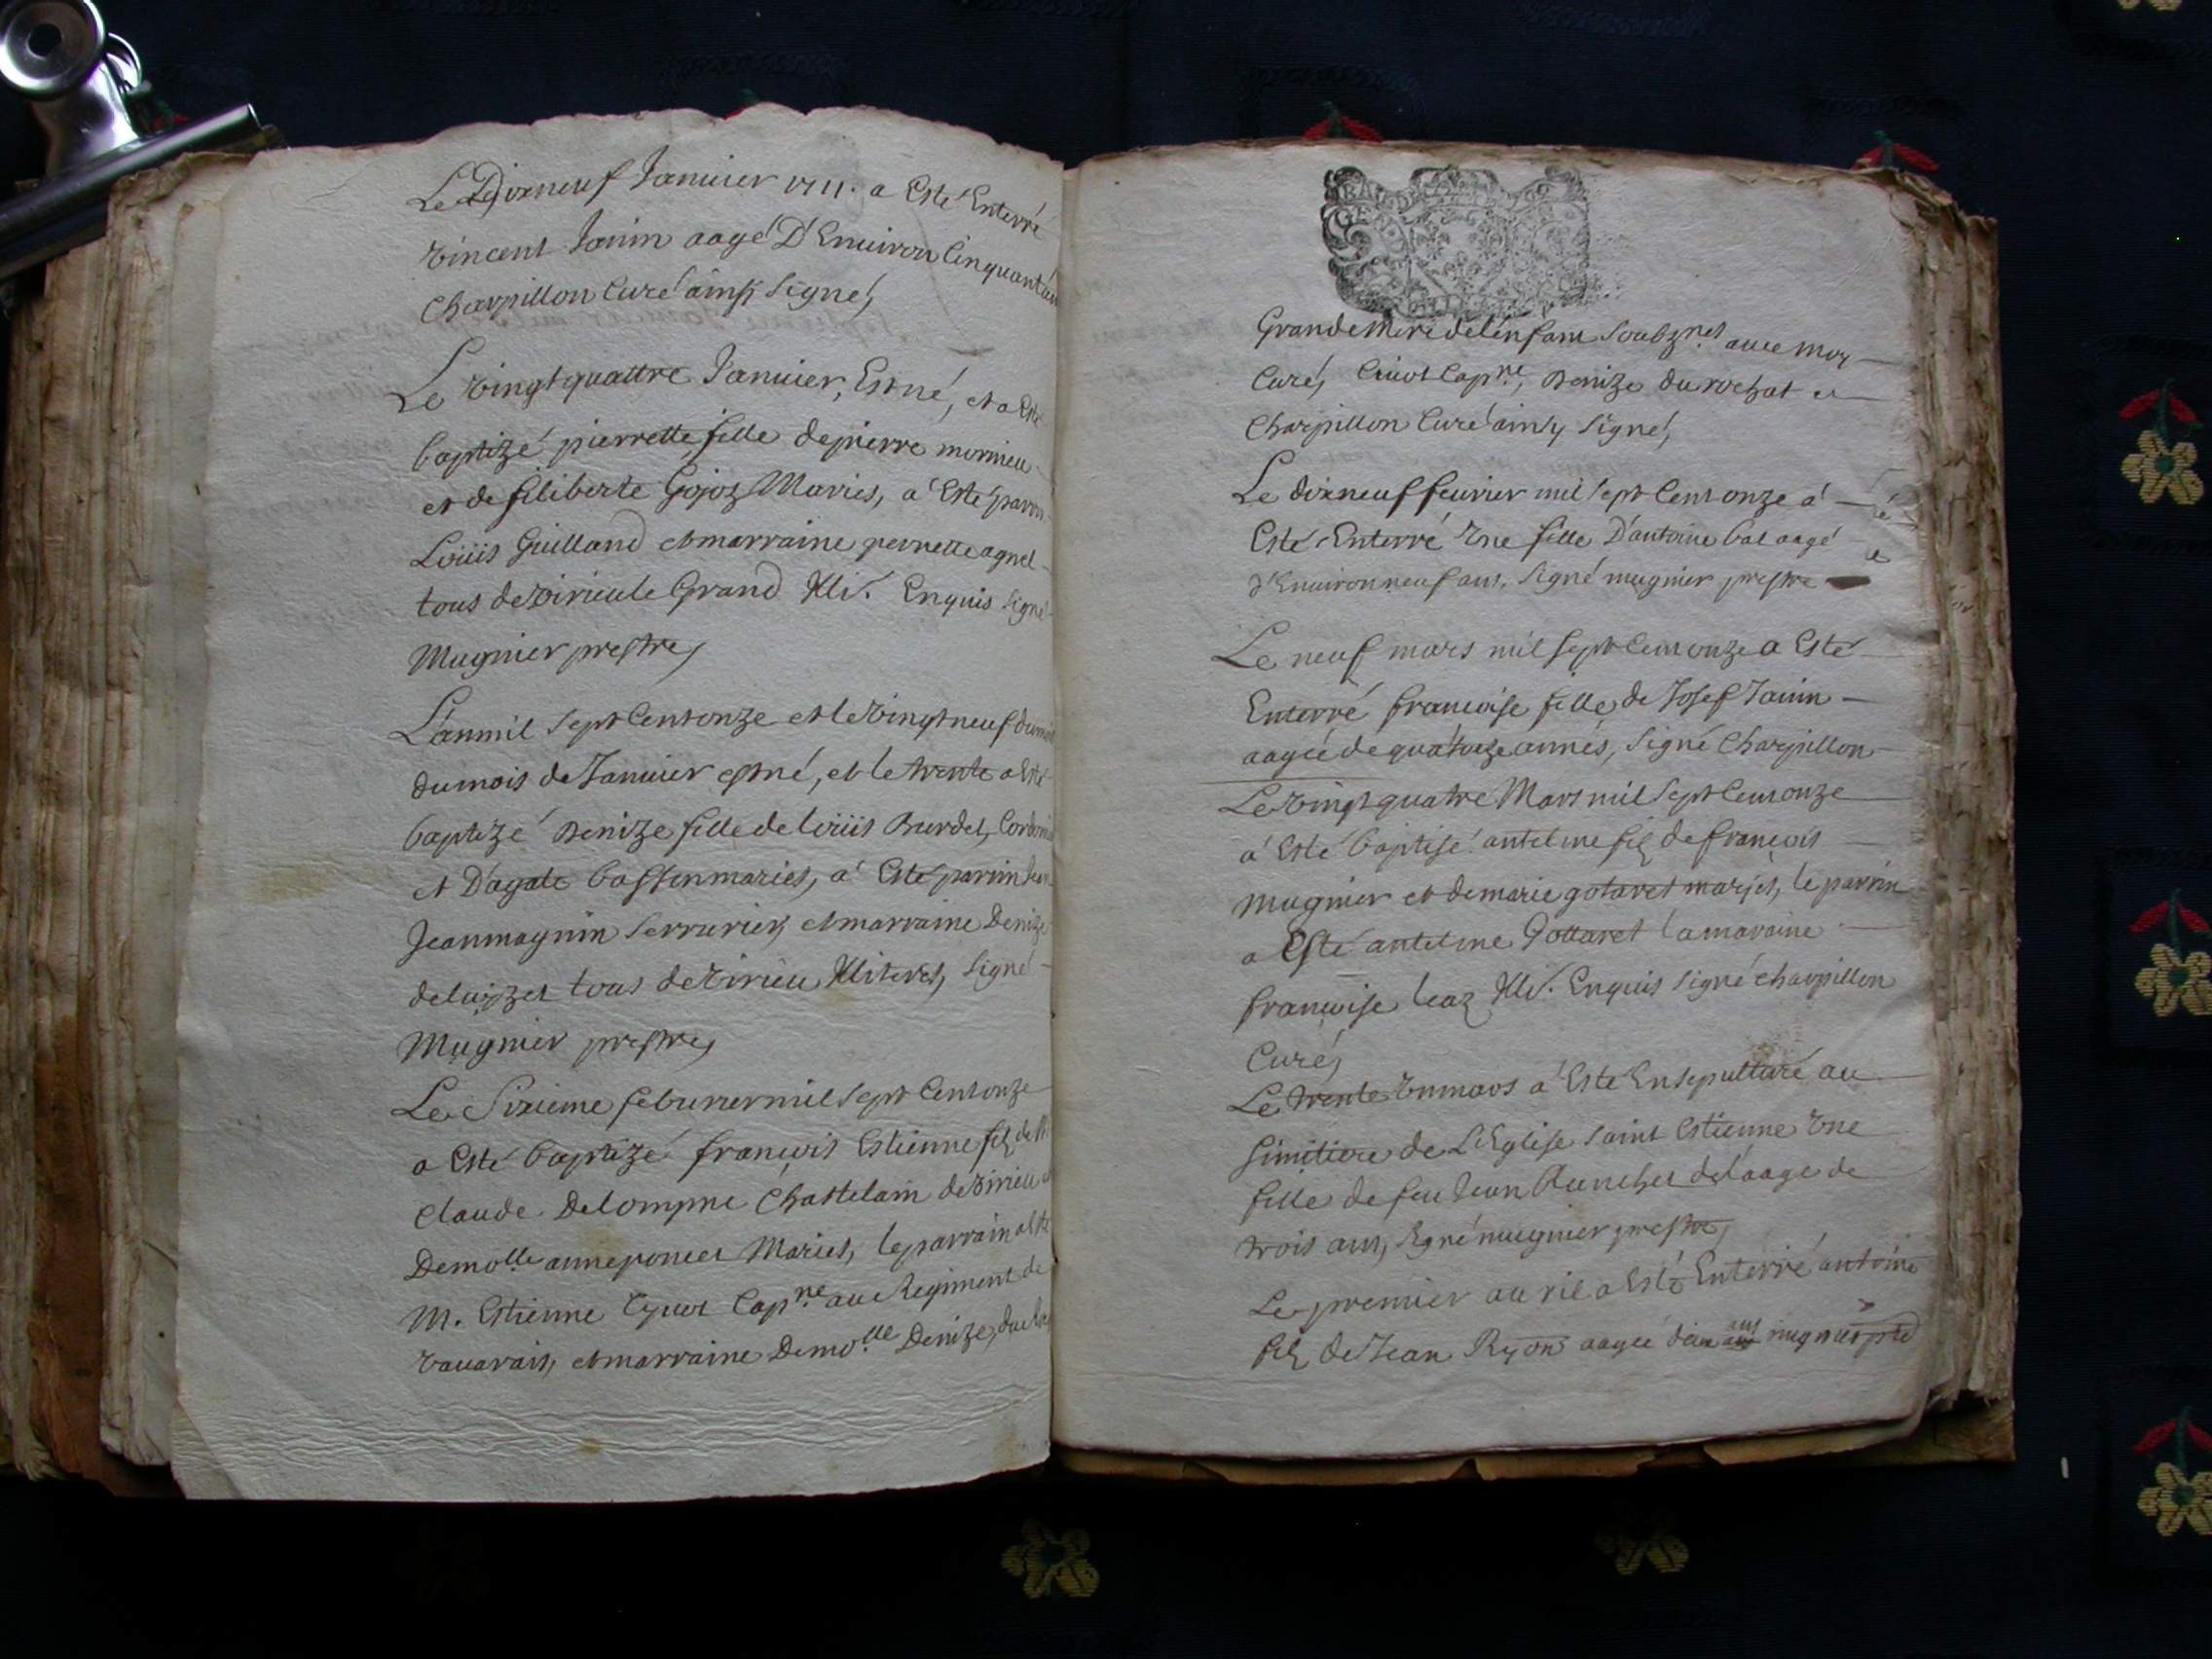 Le Dixneuf Januier 1711. a Esté Enterré
vincent Janin aagé D'Enuiron Cinquant'an
Charpillon Curé ainsy signé,
Le vingtquattre Januier, Est né, et a Esté
baptizé pierrette fille de pierre morineu
et de filiberte Gojoz Maries, a' Esté parrin
Loüis Guilland et marraine perrette agnel
tous de virieu le Grand Illi. Enquis signé
Mugnier prestre,
L'an mil sept Cent onze et le vingt neuf du mois
du mois de Januier est né, et le trente a Esté
baptizé Denize fille de loüis Burdet, Cordonn
et D'agate bassin maries, a' Esté parrin Jean
Jean magnin serrurier, et marraine Denize
tous de virieu Illiteres, signé
Mugnier prestre,
Le sixieme feburier mil sept Cent onze
a Esté baptizé françois Estienne filz de
Claude Delompne Chastelain de virieu et
Demolle anne poncet Maries, le parrain a Esté
M. Estienne Cyuot Capne au Regiment de
et marraine Demolle Denize du
Grande Mere de l'enfant soubznes auec moy
Curé, Ciuot Capne, Denize du rochat et
Charpillon Curé ainsy signé,
Le dixneuf feurier mil sept Cent onze a'
Esté Enterré vne fille D'antoine bal aagé
d'Enuiron neuf ans, signé mugnier prestre
Le neuf mars mil sept Cent onze a Esté
Enterré francoise fille de Josef Janin
aagée de quatorze annés, signé Charpillon
Le vingt quatre Mars mil sept Cent onze
a' Esté baptisé antelme filz de francois
mugnier et de marie gotaret marjes, le parrin
a Esté antelme Gottaret la maraine
francoise leaz Illi. Enquis signé charpillon
Curé,
Le trente vn mars a' Esté Ensepulturé au
simitiere de L'Eglise saint Estienne vne
fille de feu Jean de l'aage de
trois ans, signé mugnier prestre,
Le premier auril a Esté Enterré antoine
filz de Jean Ryon aagée deux ans mugnier ptre